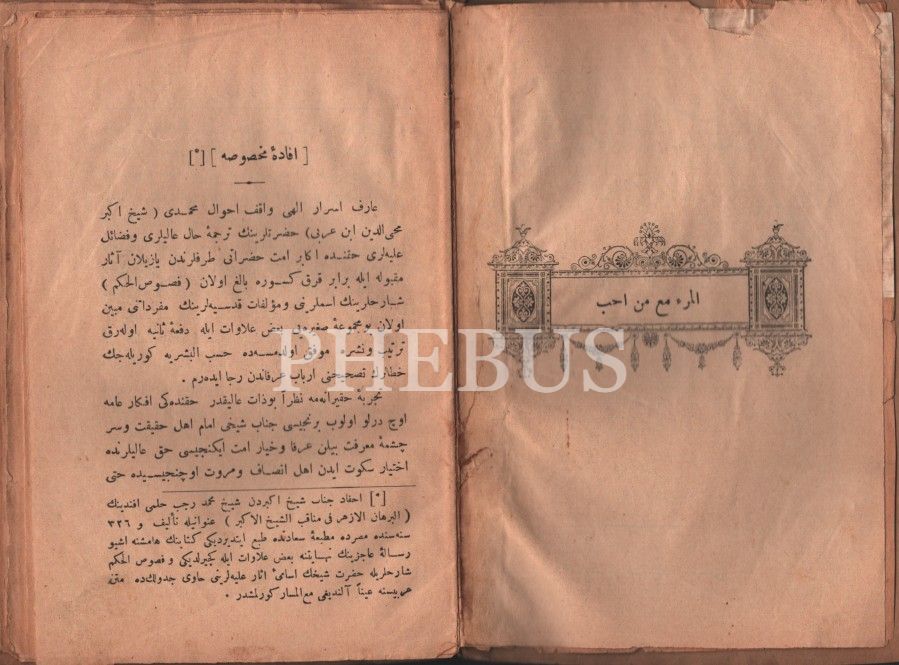 المرء مع من احب
[ افادۀ مخصوصه ] [*]
عارف اسرار الهی واقف احوال محمدی ( شیخ اکبر
محیی‌الدین ابن عربی) حضرتلرینك ترجمۀ حال عالیلری وفضائل
علیه‌لری حقنده اکابر امت حضراتی طرفلرندن یازیلان آثار
مقبوله ایله برابر قرق کسوره بالغ اولان ( فصوص الحکم )
شارحلرینك اسملرینی ومؤلفات قدسیه‌لرینك مفرداتی مبین
اولان بومجموعۀ صغیره‌یی بعض علاوات ایله دفعۀ ثانیه اوله‌رق
ترتیب ونشره موفق اولدمسه‌ده حسب البشریه کوریله‌جك
خطارك تصحیحنی ارباب عرفاندن رجا ایده‌رم .
تجربۀ حقیرانه‌مه نظراً بوذات عالیقدر حقنده‌کی افکار عامه
اوچ درلو اولوب برنجیسی جناب شیخی امام اهل حقیقت وسر
چشمۀ معرفت بیلن عرفا وخیار امت ایکنجیسی حق عالیلرنده
اختیار سکوت ایدن اهل انصاف ومروت اوچنجیسیده حتی
[*] احفاد جناب شیخ اکبردن شیخ محمد رجب حلمی افندینك
( البرهان الازهر فی مناقب الشیخ الاکبر ) عنوانیله تألیف و ٣٢٦
سنه‌سنده مصرده مطبعۀ سعادتده طبع ایتدیردیکی کتابنك هامشنه اشبو
رسالۀ عاجزینك نهایتنه بعض علاوات ایله کچیرلدیکی و فصوص الحکم
شارحلریله حضرت شیخك اسامیٔ آثار علیه‌لرینی حاوی جدولك‌ده متن
عربیسنه عیناً آلندیغی مع‌المسار کورلمشدر .
PHEBUS